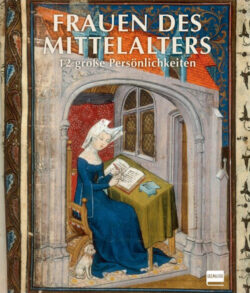 FRAUEN DES
MITTELALTERS
12 große Persönlichkeiten